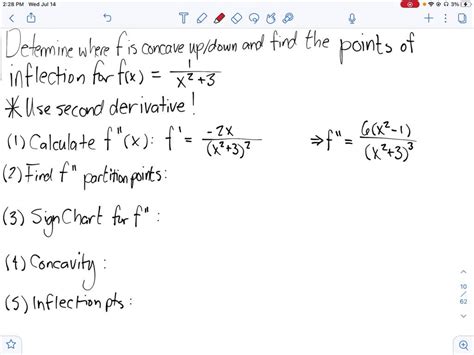 2:28 PM Wed Jul 14
3%
Determine where f is concave up/down and find the points of
inflection for f(x) = 1/(x²+3)
* Use second derivative!
(1) Calculate f"(x): f' = -2x/(x²+3)² ⇒ f" = 6(x²-1)/(x²+3)³
(2) Find f" partition points:
(3) Sign Chart for f":
(4) Concavity:
(5) Inflection pts:
10
/
62